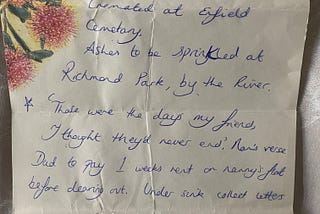 Cremated at Enfield
Cemetary.
Ashes to be sprinkled at
Richmond Park, by the River.
* 'Those were the days my friends,
I thought they'd never end.' Nan's verse
Dad to pay 1 weeks rent on nanny's flat
before clearing out. Under sink collect letters